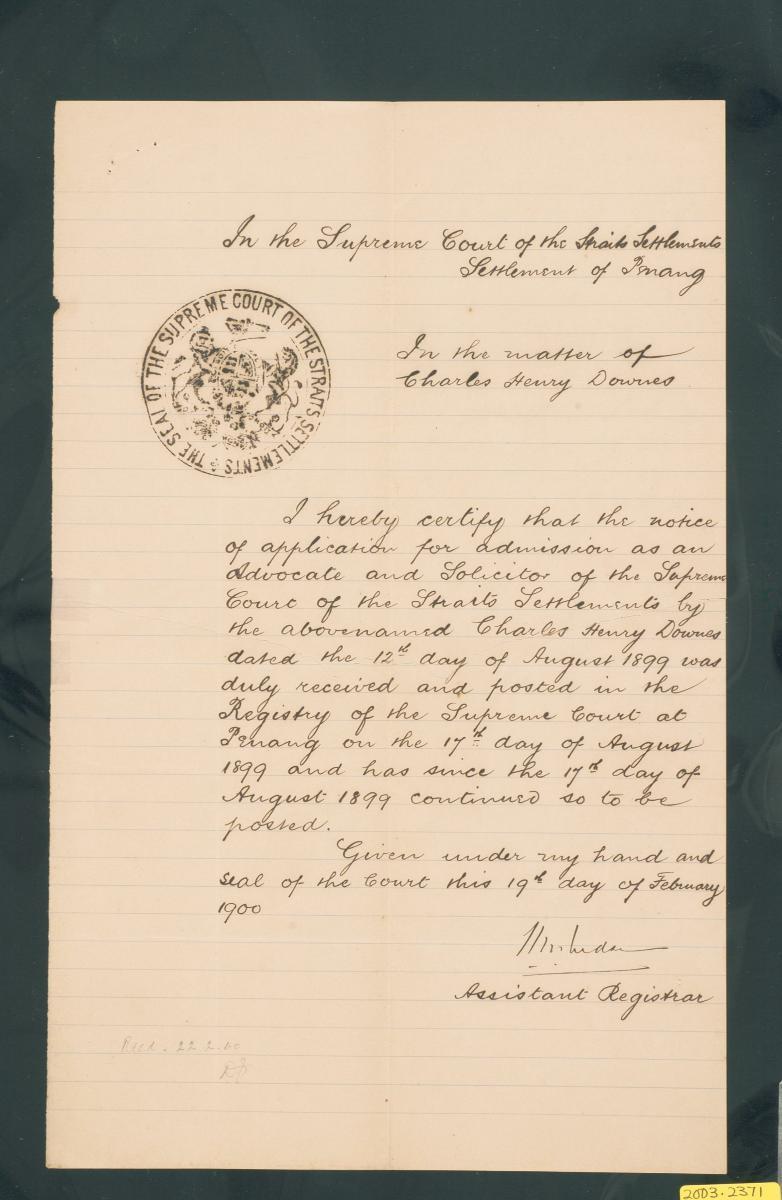 In the Supreme Court of the Straits Settlements
Settlement of Penang
THE SEAL OF THE SUPREME COURT OF THE STRAITS SETTLEMENTS
In the matter of
Charles Henry Downes
I hereby certify that the notice
of application for admission as an
Advocate and Solicitor of the Supreme
Court of the Straits Settlements by
the abovenamed Charles Henry Downes
dated the 12th day of August 1899 was
duly received and posted in the
Registry of the Supreme Court at
Penang on the 17th day of August
1899 and has since the 17th day of
August 1899 continued so to be
posted.
Given under my hand and
seal of the Court this 19th day of February
1900
Assistant Registrar
Recd. 22.2.00
2003.2371